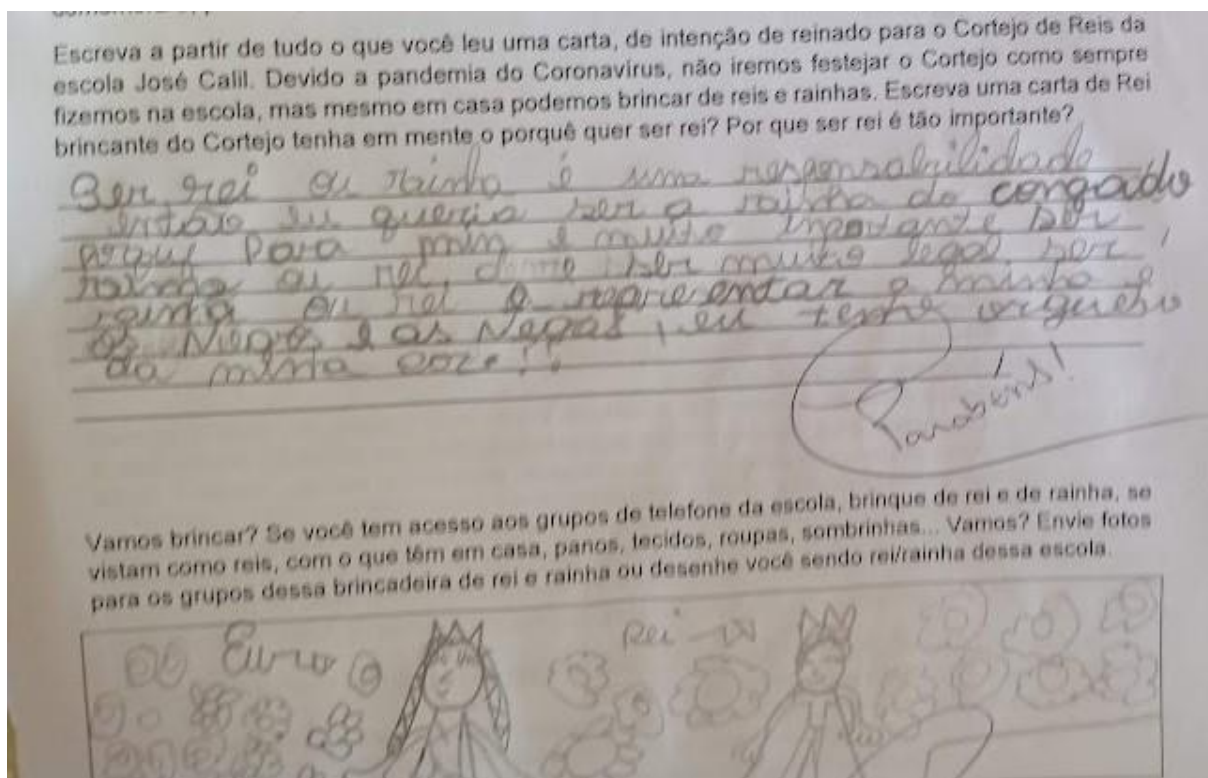 Escreva a partir de tudo o que você leu uma carta, de intenção de reinado para o Cortejo de Reis da
escola José Calil. Devido a pandemia do Coronavírus, não iremos festejar o Cortejo como sempre
fizemos na escola, mas mesmo em casa podemos brincar de reis e rainhas. Escreva uma carta de Rei
brincante do Cortejo tenha em mente o porquê quer ser rei? Por que ser rei é tão importante?
Ser rei ou rainha é uma responsabilidade
então eu queria ser a rainha do congado
porque para mim é muito importante ser
rainha ou rei, deve ser muito legal ser
rainha ou rei e a minha
os Negos e as Negas, eu tenho orgulho
da minha
Parabéns!
Vamos brincar? Se você tem acesso aos grupos de telefone da escola, brinque de rei e de rainha, se
vistam como reis, com o que têm em casa, panos, tecidos, roupas, sombrinhas... Vamos? Envie fotos
para os grupos dessa brincadeira de rei e rainha ou desenhe você sendo rei/rainha dessa escola.
Rei